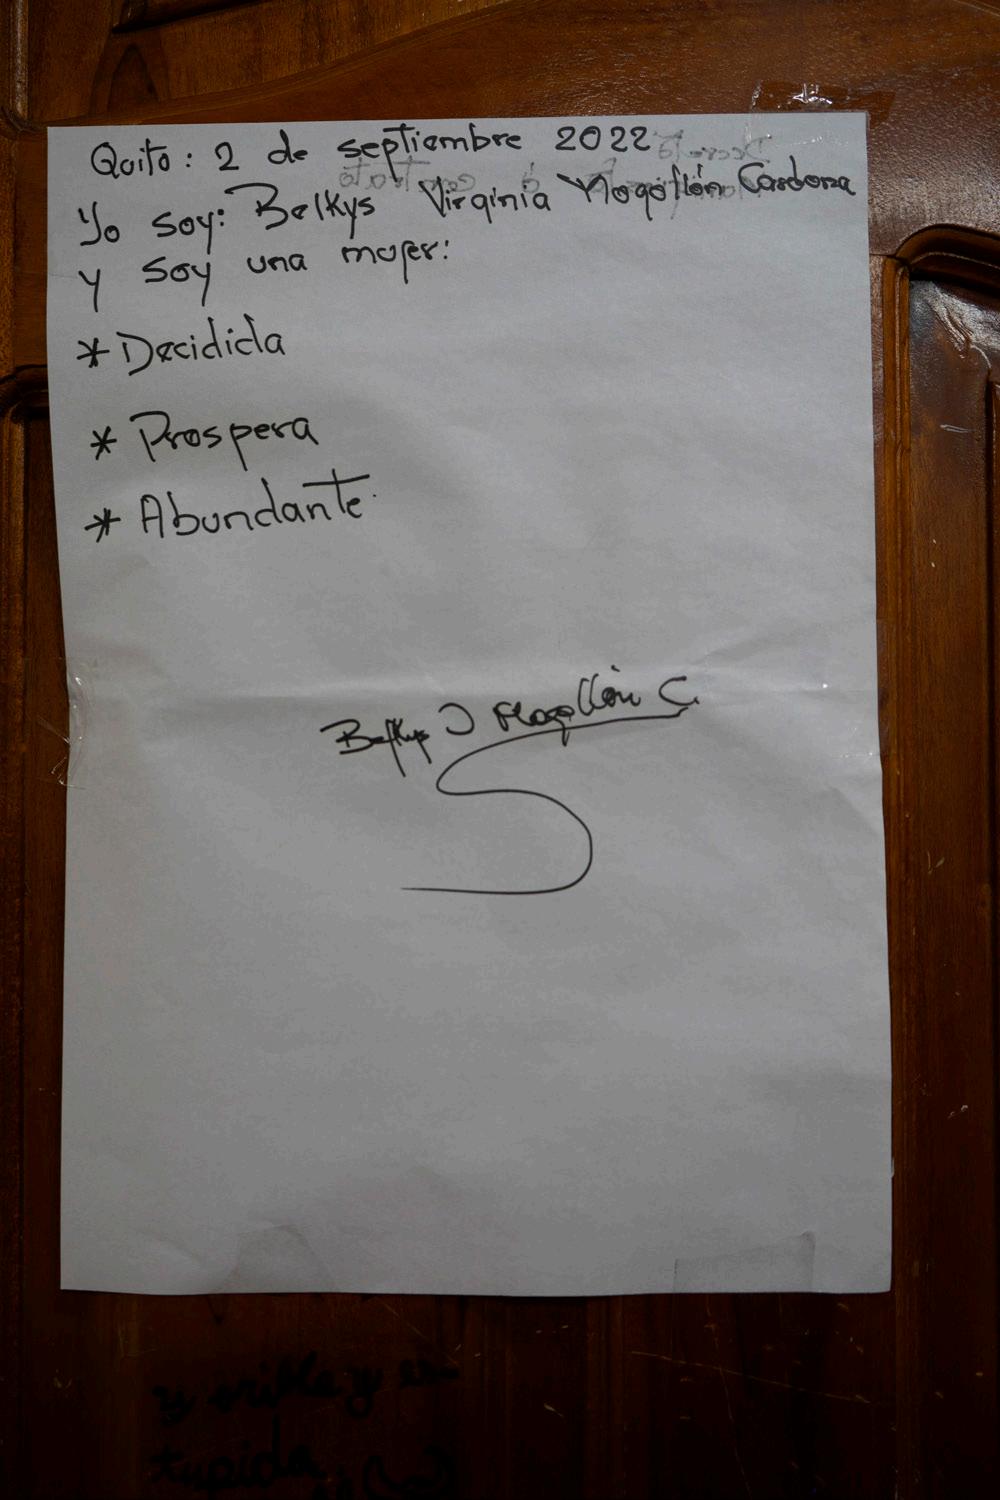 Quito: 2 de septiembre 2022
Yo soy: Belkys Virginia Mogollón Cardona
y soy una mujer:
* Decidida
* Prospera
* Abundante
Belkys V Mogollón C.